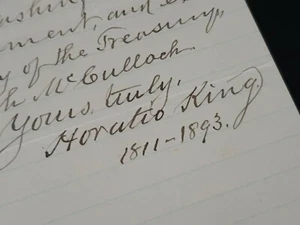 ashing
ment, and ex
y of the Treasury,
h McCulloch.
Yours truly,
Horatio King.
1811-1893.